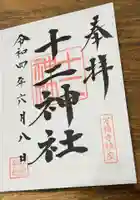 奉拝
十二神社
令和四年六月八日